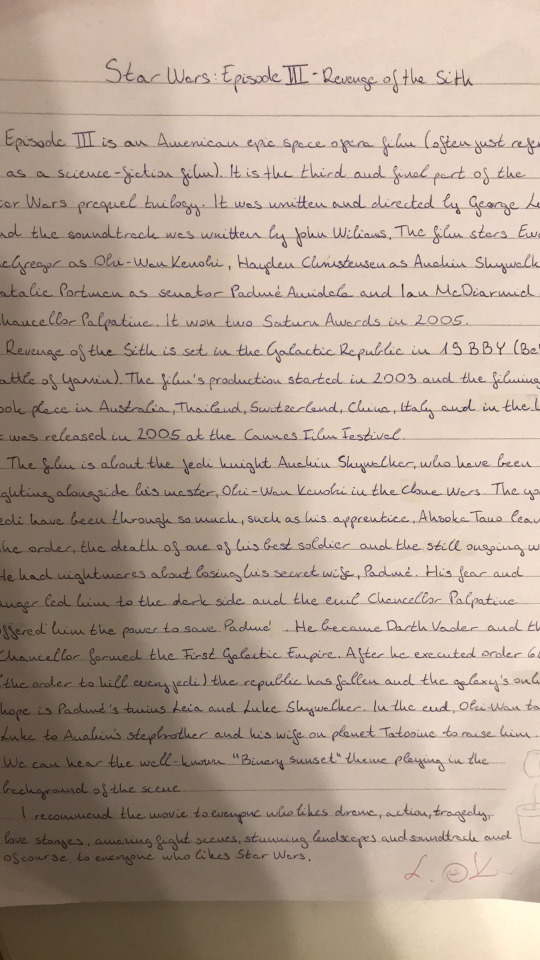 Star Wars: Episode III - Revenge of the Sith
Episode III is an American epic space opera film (often just refe
as a science-fiction film). It is the third and final part of the
tar Wars prequel trilogy. It was written and directed by George Lu
nd the soundtrack was written by John Wilians. The film stars Ewa
cGregor as Obi-Wan Kenobi, Hayden Christensen as Anakin Skywalk
atalie Portman as senator Padmé Amidala and Ian McDiarmid
hancellor Palpatine. It won two Saturn Awards in 2005.
Revenge of the Sith is set in the Galactic Republic in 19 BBY (Be
attle of Yavin). The film's production started in 2003 and the filming
ook place in Australia, Thailand, Switzerland, China, Italy and in the U
t was released in 2005 at the Cannes Film Festival.
The film is about the Jedi knight Anakin Skywalker, who have been
ighting alongside his master, Obi-Wan Kenobi in the Clone Wars. The yo
edi have been through so much, such as his apprentice, Ahsoka Tano leav
he order, the death of one of his best soldier and the still ongoing w
He had nightmares about losing his secret wife, Padmé. His fear and
nger led him to the dark side and the evil Chancellor Palpatine
ffered him the power to save Padmé . He became Darth Vader and th
Chancellor formed the First Galactic Empire. After he executed order 66
(the order to kill every jedi) the republic has fallen and the galaxy's onl
hope is Padmé's twins Leia and Luke Skywalker. In the end, Obi-Wan to
Luke to Anakin's stepbrother and his wife on planet Tatooine to raise him.
We can hear the well-known "Binary sunset" theme playing in the
background of the scene.
I recommend the movie to everyone who likes drama, action, tragedy,
love storyes, amazing fight scenes, stunning landscapes and soundtrack and
of course, to everyone who likes Star Wars.